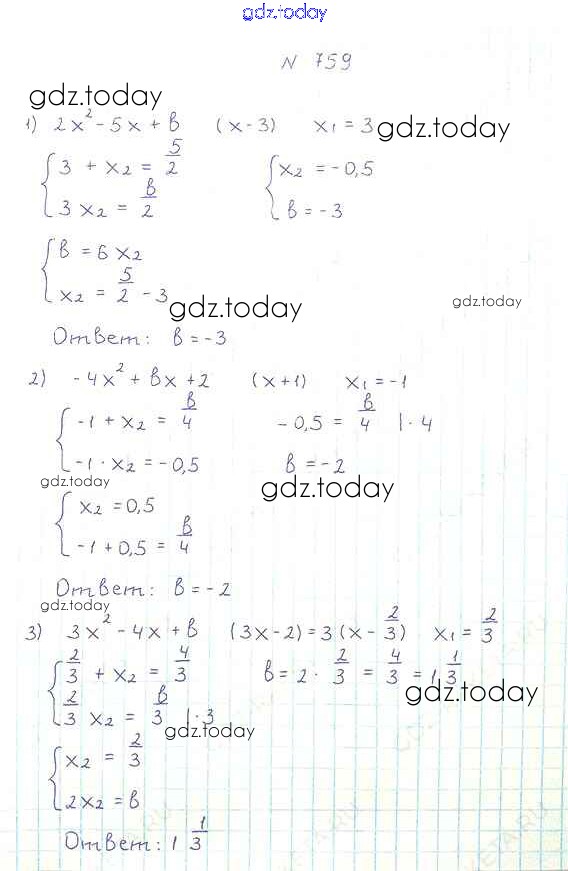 gdz.today
N 759
gdz.today
1) 2x² - 5x + в (x-3) x₁ = 3 gdz.today
{ 3 + x₂ = 5/2 { x₂ = -0,5
3 x₂ = в/2 в = -3
{ в = 6 x₂
x₂ = 5/2 - 3 gdz.today gdz.today
Ответ: в = -3
2) -4x² + вx + 2 (x+1) x₁ = -1
{ -1 + x₂ = в/4 -0,5 = в/4 |· 4
-1 · x₂ = -0,5 в = -2
gdz.today gdz.today
{ x₂ = 0,5
-1 + 0,5 = в/4
Ответ: в = -2
gdz.today
3) 3x² - 4x + в (3x-2) = 3 (x - 2/3) x₁ = 2/3
{ 2/3 + x₂ = 4/3 в = 2 · 2/3 = 4/3 = 1 1/3
gdz.today
2/3 x₂ = в/3 |· 3
gdz.today
{ x₂ = 2/3
2x₂ = в
Ответ: 1 1/3